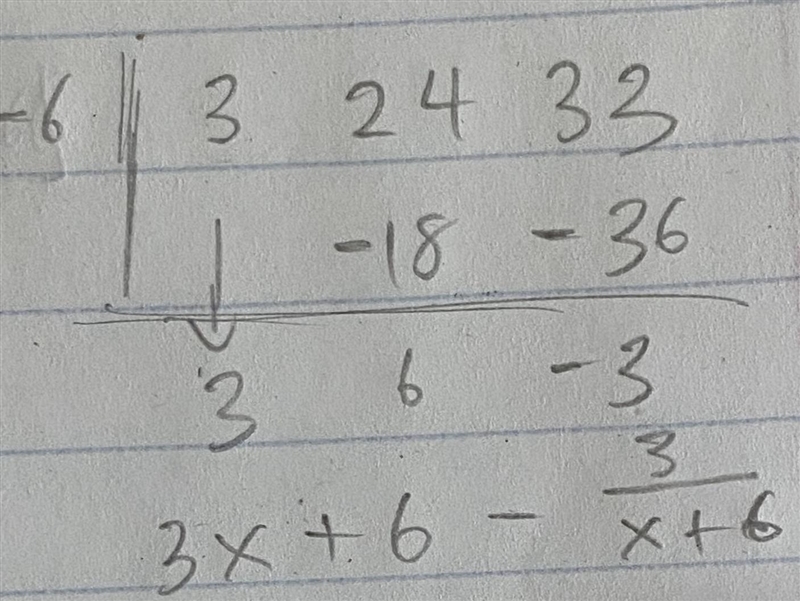 -6 | 3 24 33
↓ -18 -36
3 6 -3
3x + 6 - 3/(x+6)